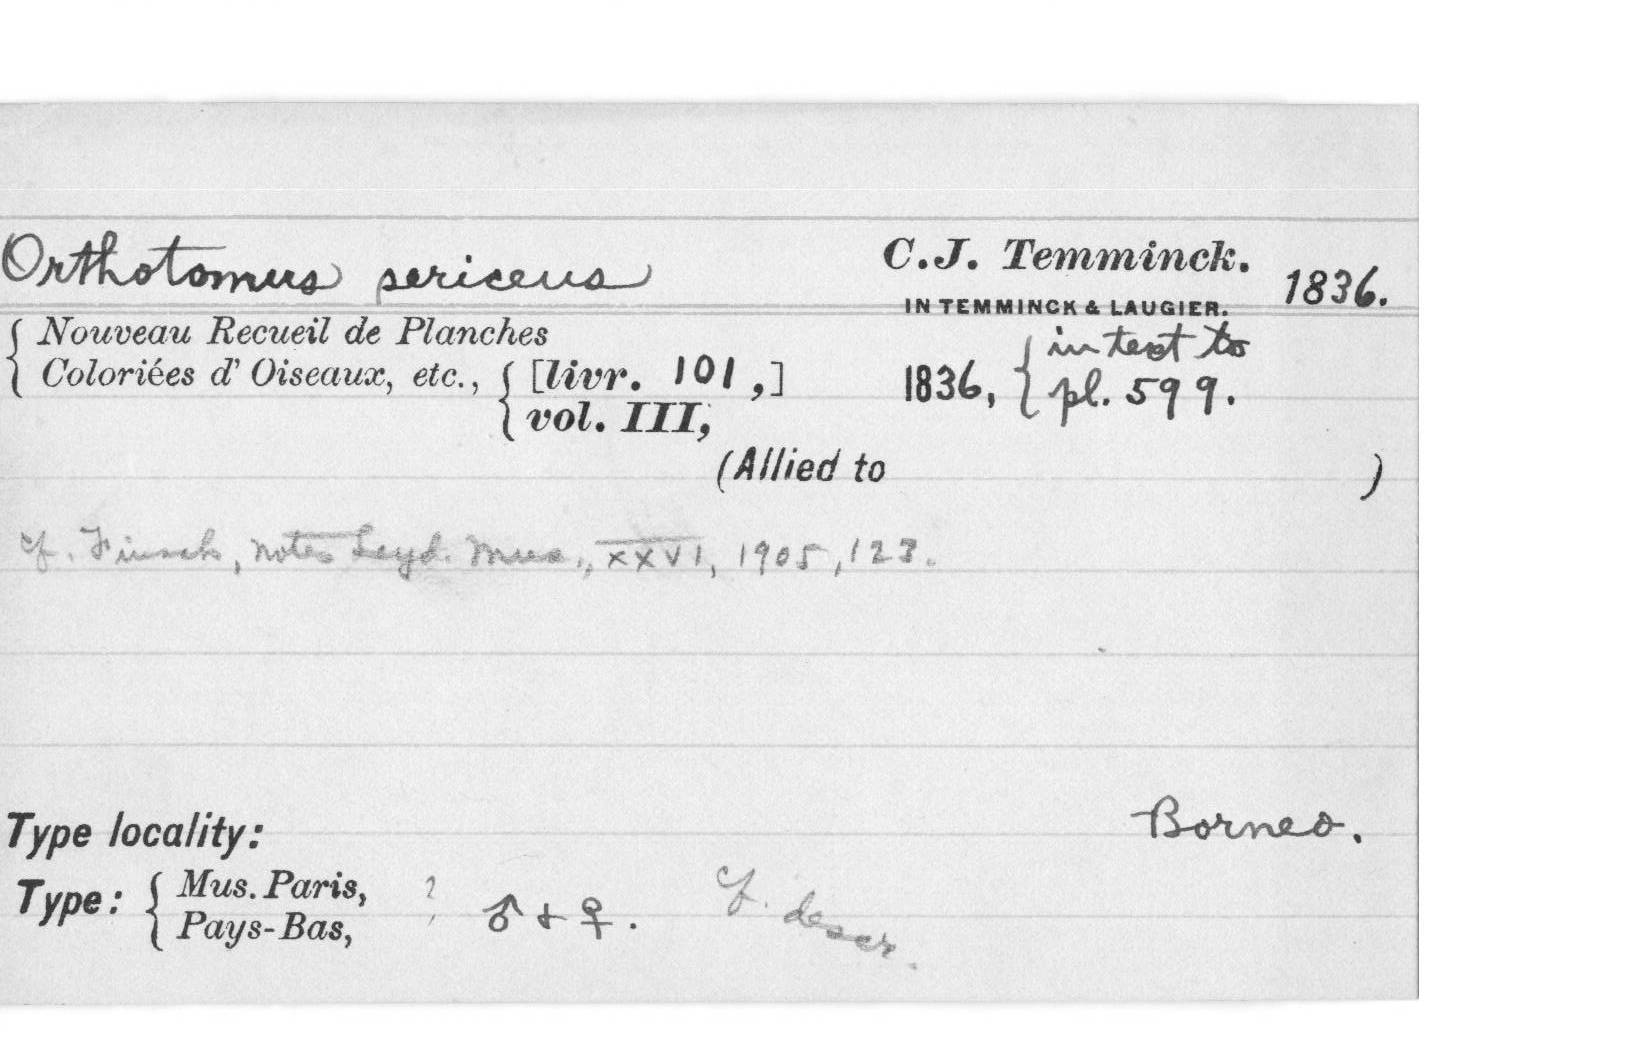 Orthotomus sericeus C.J. Temminck. 1836.
IN TEMMINCK & LAUGIER.
{ Nouveau Recueil de Planches
Coloriées d' Oiseaux, etc., { [livr. 101,] 1836, { in text to
vol. III, pl. 599.
(Allied to )
cf. Finsch, Notes Leyd. Mus., XXVI, 1905, 123.
Type locality: Borneo.
Type: { Mus. Paris, ? ♂ + ♀. cf. descr.
Pays-Bas,